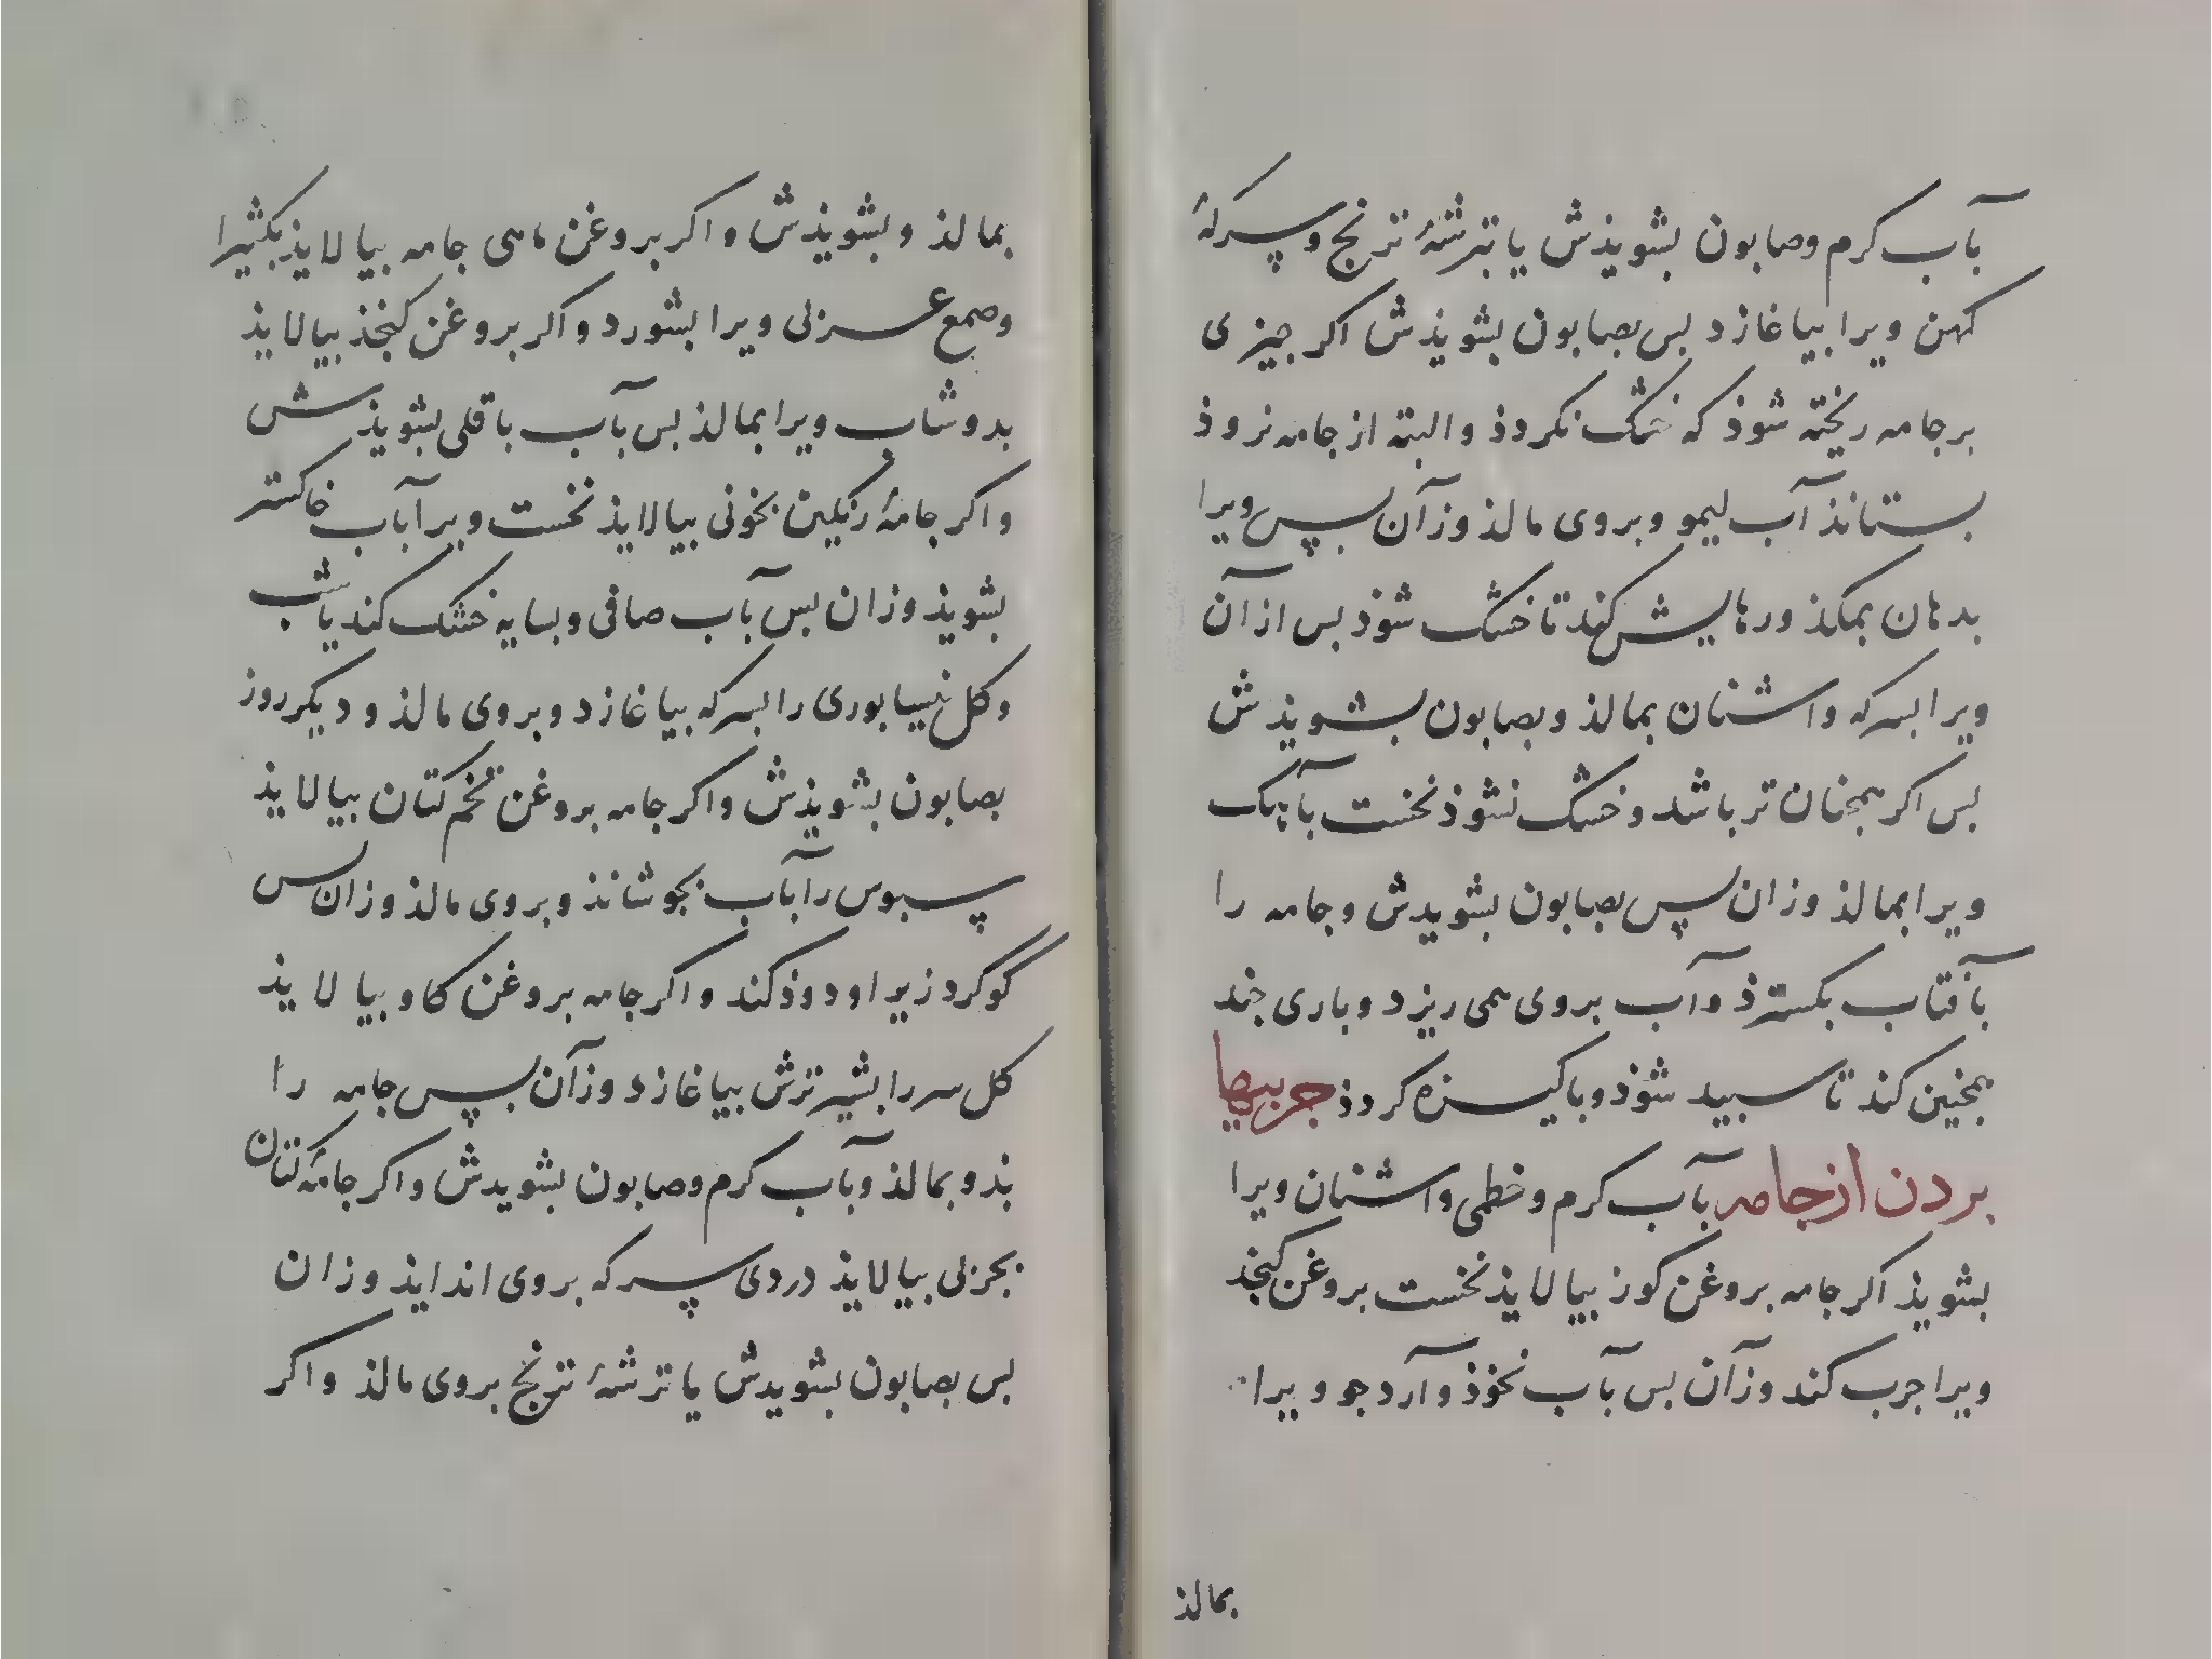 بآب کرم وصابون بشویذش یا بترشهٔ ترنج وسرکهٔ
کهن ویرا بیاغازد بس بصابون بشویذش اکر جیزی
برجامه ریخته شوذ که خشک نکردذ والبته از جامه نروذ
بستانذ آب لیمو وبروی مالذ وزآن پس ویرا
بدهان بمکذ ورهایش کند تا خشک شوذ بس ازآن
ویرا بسرکه واشنان بمالذ وبصابون بشویذش
بس اکر همجنان تر باشد وخشک نشوذ نخست بآهک
ویرا بمالذ وزان پس بصابون بشویدش وجامه را
بآفتاب بکسترذ وآب بروی همی ریزد وباری جند
همجنین کند تا سبید شوذ وباکیزه کردذ جربیها
بردن ازجامه بآب کرم وخطمی واشنان ویرا
بشویذ اکر جامه بروغن کوز بیالایذ نخست بروغن کنجذ
ویرا جرب کند وزآن بس بآب نخوذ وآرد جو ویرا
بمالذ
بمالذ وبشویذش واکر بروغن ماهی جامه بیالایذ بکثیرا
وصمغ عزلی ویرا بشورد واکر بروغن کنجذ بیالایذ
بدوشاب ویرا بمالذ بس بآب باقلی بشویذش
واکر جامهٔ رنکین بخونی بیالایذ نخست ویرا بآب خاکستر
بشویذ وزان بس بآب صافی وبسایه خشک کند یا شب
وکل نیسابوری را بسرکه بیاغازد وبروی مالذ ودیکر روز
بصابون بشویذش واکر جامه بروغن تخم کتان بیالایذ
سبوس را بآب بجوشانذ وبروی مالذ وزان بس
گوگرد زیر او دوذ کند واکر جامه بروغن کاو بیالایذ
کل سر را بشیر ترش بیاغازد وزآن پس جامه را
بذو بمالذ وبآب کرم وصابون بشویدش واکر جامهٔ کتان
بجربی بیالایذ دردی سرکه بروی اندایذ وزان
بس بصابون بشویدش یا ترشهٔ ترنج بروی مالذ واکر